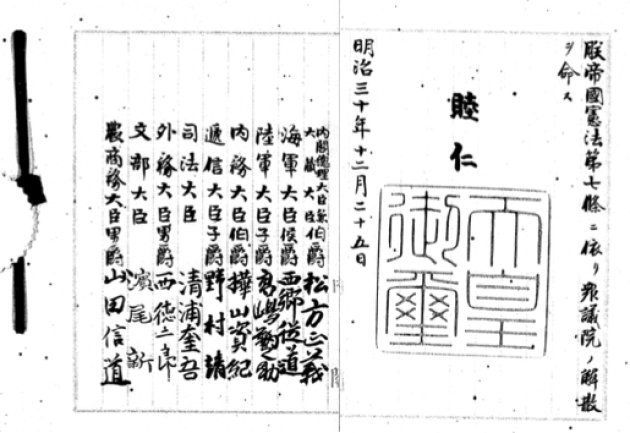 朕帝國憲法第七條ニ依リ衆議院ノ解散
ヲ命ス
睦仁
天皇御璽
明治三十年十二月二十五日
内閣總理大臣兼大藏大臣伯爵松方正義
海軍大臣侯爵西郷従道
陸軍大臣子爵髙嶋鞆之助
内務大臣伯爵樺山資紀
遞信大臣子爵野村靖
司法大臣清浦奎吾
外務大臣男爵西徳二郎
文部大臣濱尾新
農商務大臣男爵山田信道